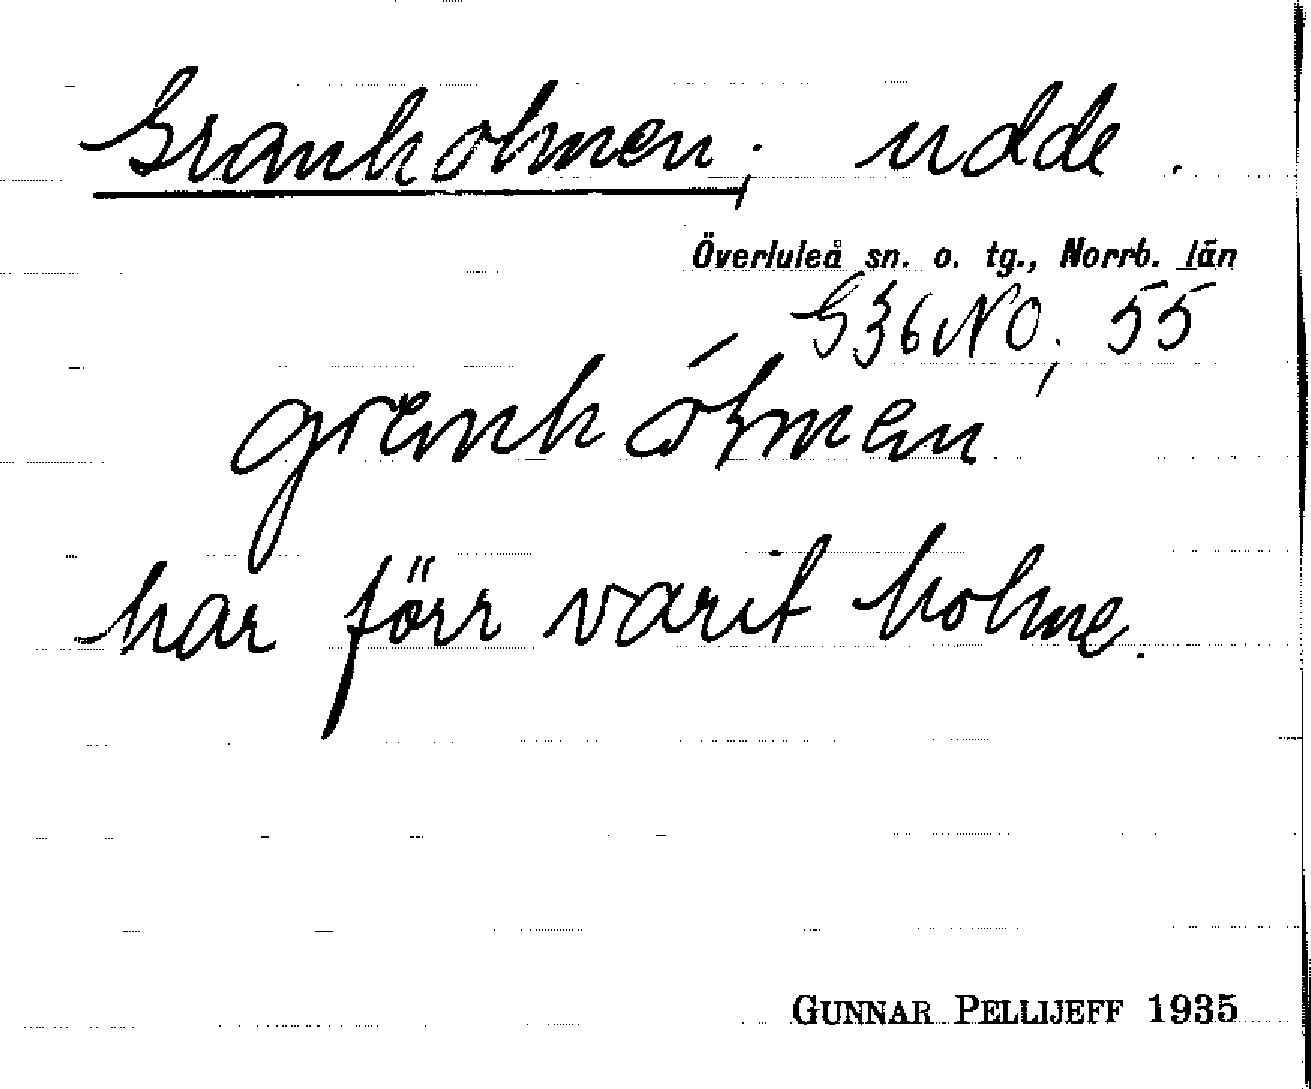 Granholmen; udde.
Överluleå sn. o. tg., Norrb. län
G36NO; 55
har förr varit holme.
GUNNAR PELLIJEFF 1935